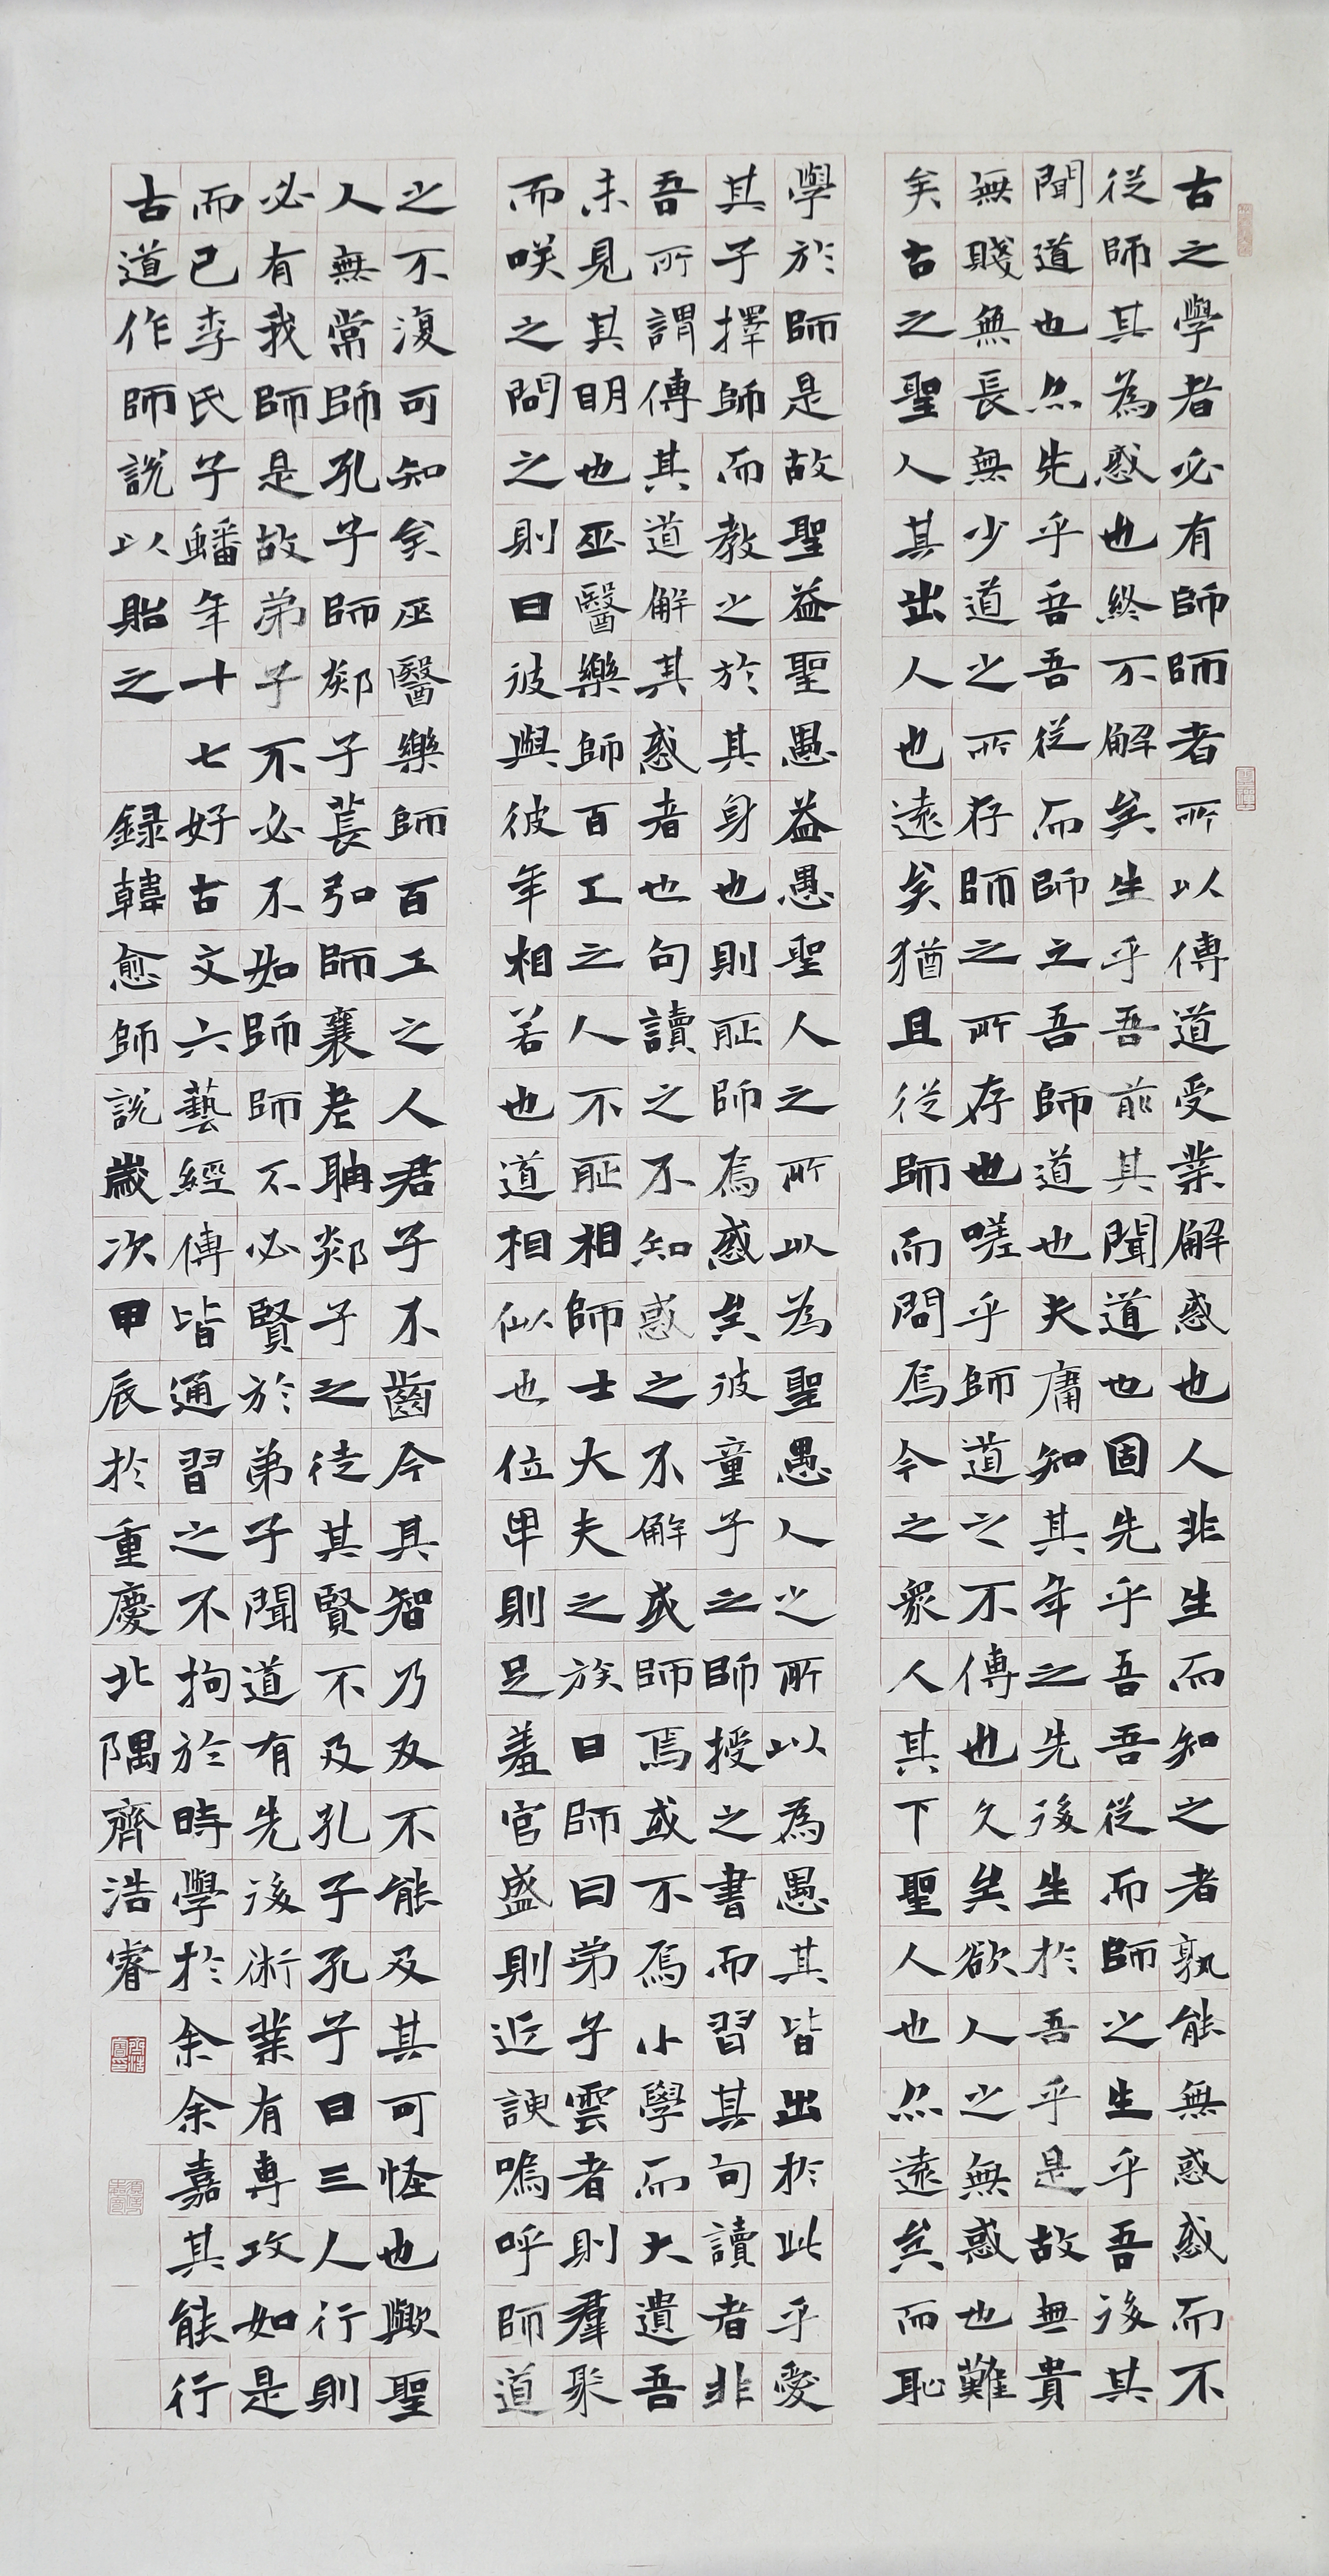 古之學者必有師師者所以傳道受業解惑也人非生而知之者孰能無惑惑而不
從師其為惑也終不解矣生乎吾前其聞道也固先乎吾吾從而師之生乎吾後其
聞道也亦先乎吾吾從而師之吾師道也夫庸知其年之先後生於吾乎是故無貴
無賤無長無少道之所存師之所存也嗟乎師道之不傳也久矣欲人之無惑也難
矣古之聖人其出人也遠矣猶且從師而問焉今之眾人其下聖人也亦遠矣而恥
學於師是故聖益聖愚益愚聖人之所以為聖愚人之所以為愚其皆出於此乎愛
其子擇師而教之於其身也則耻師焉惑矣彼童子之師授之書而習其句讀者非
吾所謂傳其道解其惑者也句讀之不知惑之不解或師焉或不焉小學而大遺吾
未見其明也巫醫樂師百工之人不耻相師士大夫之族曰師曰弟子雲者則羣聚
而咲之問之則曰彼與彼年相若也道相似也位卑則足羞官盛則近諛嗚呼師道
之不復可知矣巫醫樂師百工之人君子不齒今其智乃反不能及其可怪也歟聖
人無常師孔子師郯子萇弘師襄老聃郯子之徒其賢不及孔子孔子曰三人行則
必有我師是故弟子不必不如師師不必賢於弟子聞道有先後術業有專攻如是
而已李氏子蟠年十七好古文六藝經傳皆通習之不拘於時學於余余嘉其能行
古道作師說以貽之 録韓愈師說歲次甲辰於重慶北隅齊浩睿